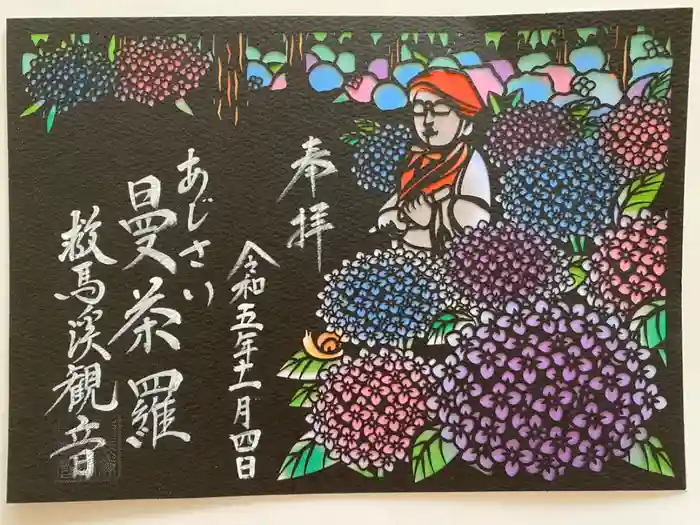 奉拝
令和五年十一月四日
あじさい
曼荼羅
救馬溪観音